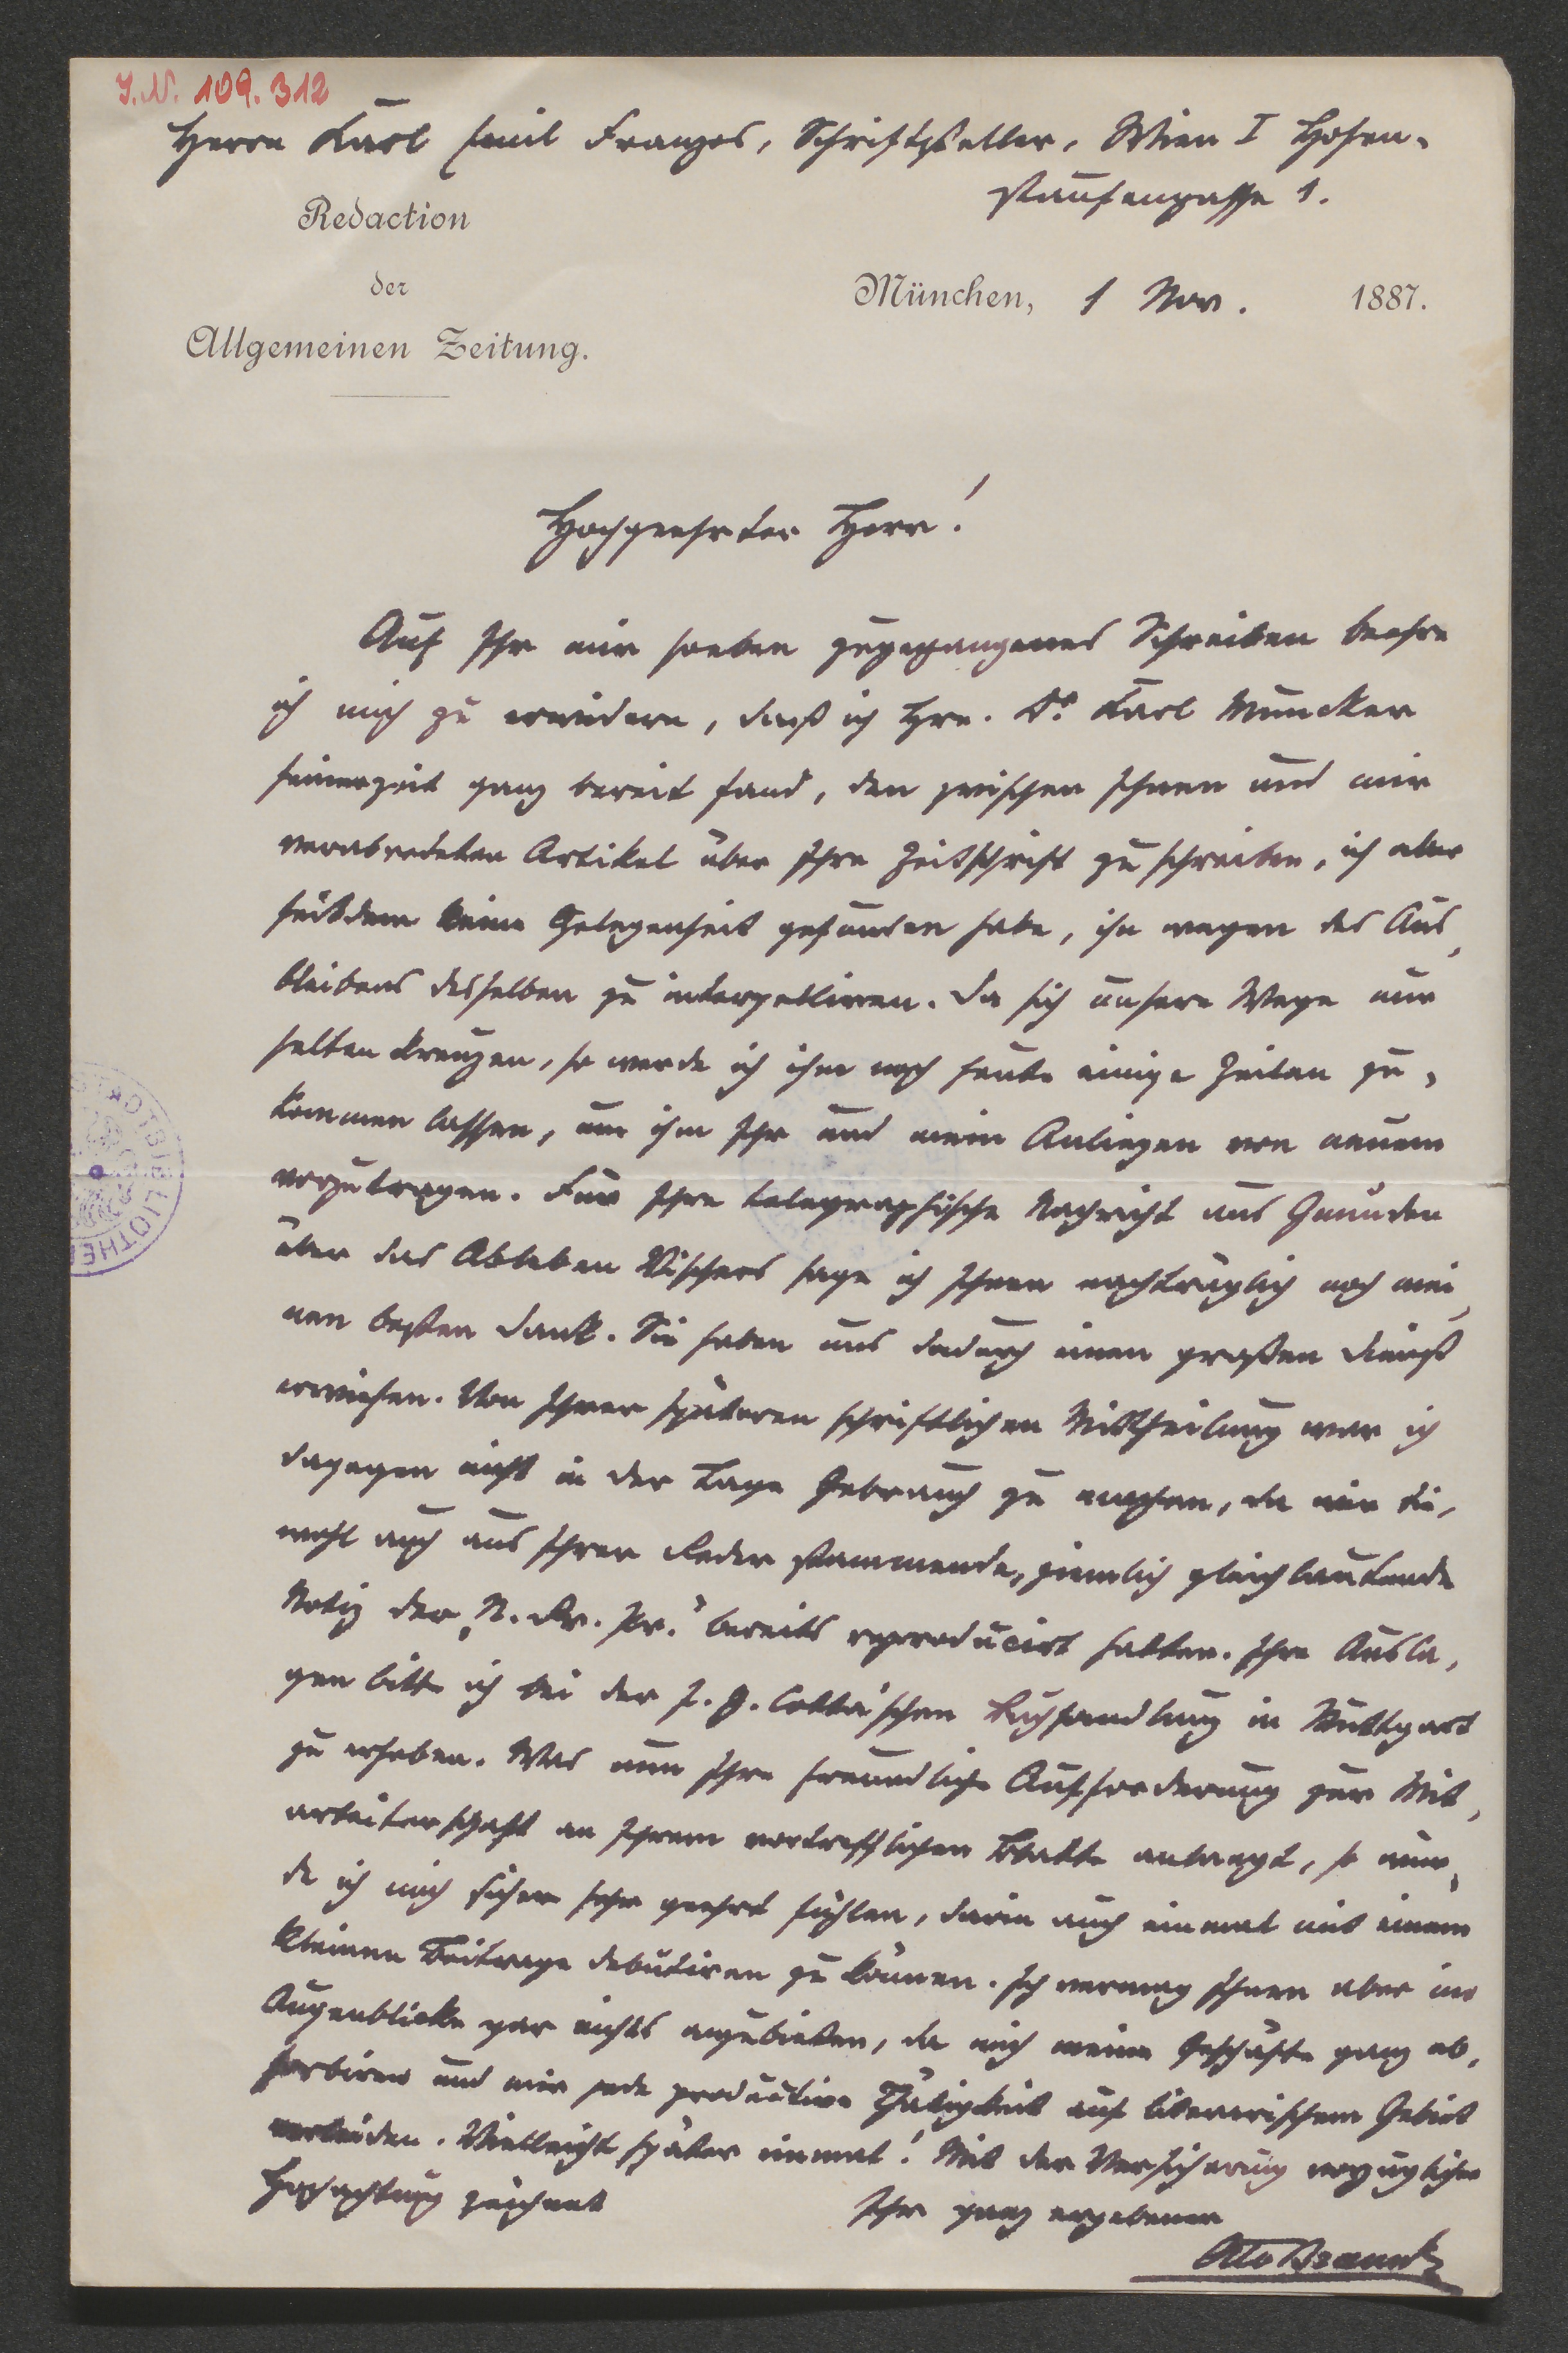 J.N. 109.312
Herrn Karl Emil Franzos, Schriftsteller, Wien I Hohen-
staufengasse 1.
Redaction
der
Allgemeinen Zeitung.
München, 1 Nov. 1887.
Hochgeehrter Herr!
Auf Ihr mir soeben zugegangenes Schreiben beehre
ich mich zu erwidern, daß ich Hrn. Dr. Karl Muncker
seinerzeit ganz bereit fand, den zwischen Ihnen und mir
verabredeten Artikel über Ihre Zeitschrift zu schreiben, ich aber
seitdem keine Gelegenheit gefunden habe, ihn wegen des Aus-
bleibens desselben zu interpelliren. Da sich unsere Wege nur
selten kreuzen, so werde ich ihm noch heute einige Zeilen zu-
kommen lassen, um ihm Ihr und mein Anliegen von neuem
vorzutragen. Für Ihre telegraphische Nachricht aus Gmunden
über das Ableben Vischers sage ich Ihnen nachträglich noch mei-
nen besten Dank. Sie haben uns dadurch einen großen Dienst
erwiesen. Von Ihrer späteren schriftlichen Mittheilung war ich
dagegen nicht in der Lage Gebrauch zu machen, da wir die,
wohl auch aus Ihrer Feder stammende, ziemlich gleichlautende
Notiz der „N. Fr. Pr." bereits reproducirt hatten. Ihre Ausla-
gen bitte ich bei der J. G. Cotta'schen Buchhandlung in Stuttgart
zu erheben. Was nun Ihre freundliche Aufforderung zur Mit-
arbeiterschaft an Ihrem vortrefflichen Blatte anlangt, so wür-
de ich mich sicher sehr geehrt fühlen, darin auch einmal mit einem
kleinen Beitrage debütiren zu können. Ich vermag Ihnen aber im
Augenblicke gar nichts anzubieten, da mich meine Geschäfte ganz ab-
sorbiren und mir jede productive Thätigkeit auf literarischem Gebiet
verleiden. Vielleicht später einmal! Mit der Versicherung vorzüglicher
Hochachtung zeichnet Ihr ganz ergebener
Otto Braun